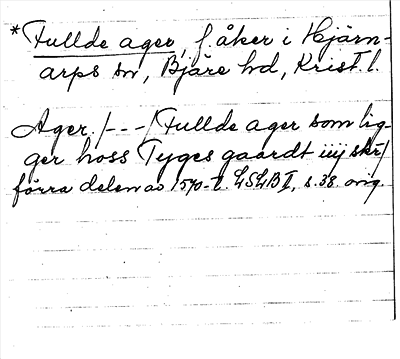 *Fullde ager, f. åker i Hjärn-
arps sn, Bjäre hd, Krist. l.
Ager. /---/ Fullde ager som lig-
ger hoss Tyges gaardt iiij skr/
förra delen av 1570-t. LSLB II, s. 38. orig.